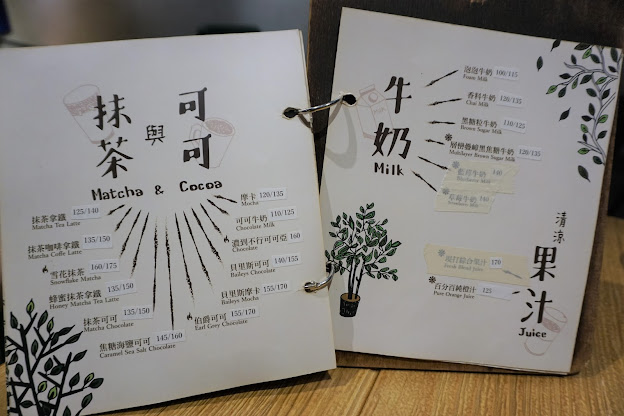 抹茶
與
可可
Matcha & Cocoa
抹茶拿鐵 125/140
Matcha Tea Latte
抹茶咖啡拿鐵 135/150
Matcha Coffe Latte
雪花抹茶 160/175
Snowflake Matcha
蜂蜜抹茶拿鐵 135/150
Honey Matcha Tea Latte
抹茶可可 135/150
Matcha Chocolate
焦糖海鹽可可 145/160
Caramel Sea Salt Chocolate
摩卡 120/135
Mocha
可可牛奶 110/125
Chocolate Milk
濃到不行可可亞 160
Chocolate
貝里斯可可 140/155
Baileys Chocolate
貝里斯摩卡 155/170
Baileys Mocha
伯爵可可 155/170
Earl Grey Chocolate
牛奶
Milk
泡泡牛奶 100/115
Foam Milk
香料牛奶 120/135
Chai Milk
黑糖粒牛奶 110/125
Brown Sugar Milk
層枌疊嶂黑焦糖牛奶 120/135
Multilayer Brown Sugar Milk
140
140
清涼
果汁
Juice
現打綜合果汁 170
百分百純橙汁 125
Pure Orange Juice